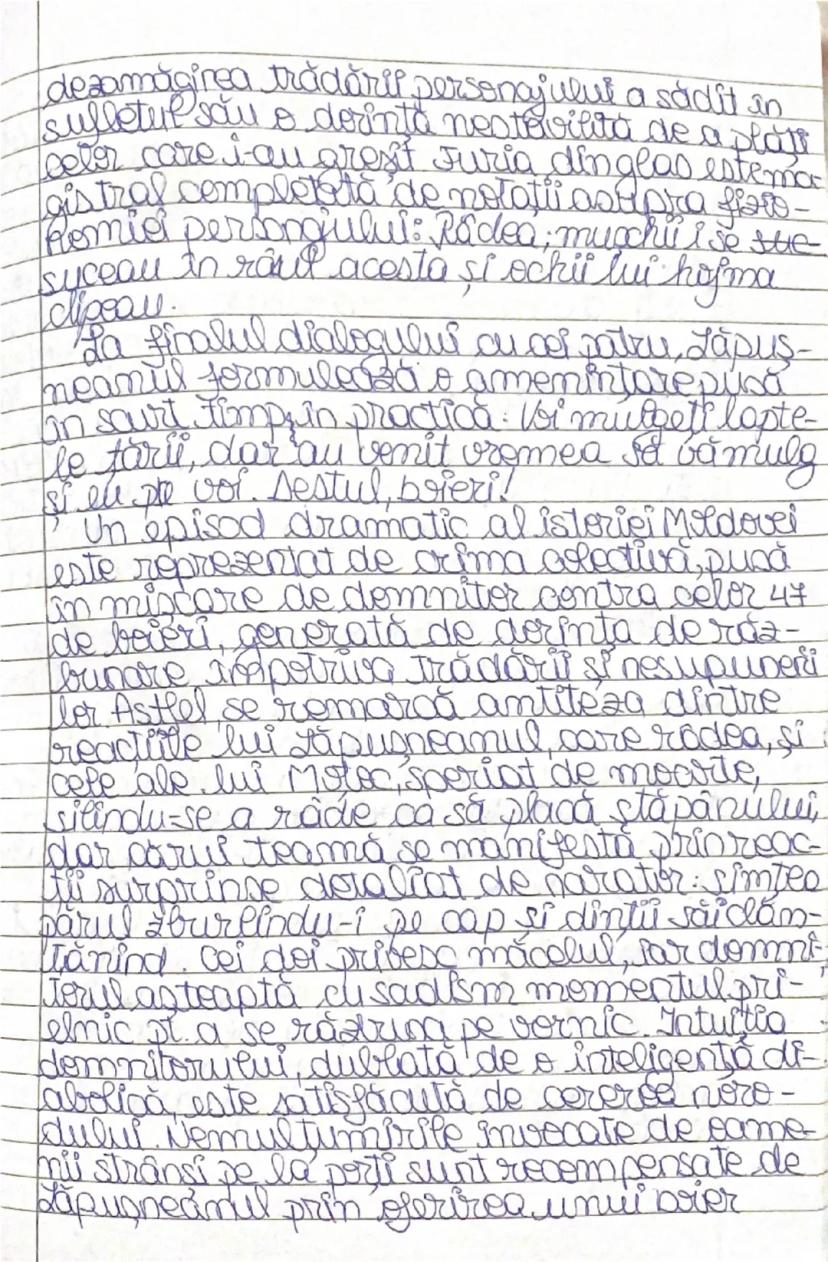 dezamăgirea trădării personajului a sădit în
sufletul său o dorință nestăvilită de a plăti
celor care i-au greșit. Furia din glas este ma-
gistral completată de notații asupra fizio-
nomiei personajului: Râdea; mușchii i se sue
suceau în râsul acesta și ochii lui hojma
clipeau.
La finalul dialogului cu cei patru, Lăpuș-
neanul formulează o amenințare pusă
în scurt timp în practică: Voi mulgeți lapte-
le țării, dar au venit vremea să vă mulg
și eu pe voi. Destul, boieri!
Un episod dramatic al istoriei Moldovei
este reprezentat de crima colectivă, pusă
în mișcare de domnitor contra celor 47
de boieri, generată de dorința de răz-
bunare împotriva trădării și nesupunerii
lor. Astfel, se remarcă antiteza dintre
reacțiile lui Lăpușneanul, care râdea, și
cele ale lui Motoc, speriat de moarte,
silindu-se a râde ca să placă stăpânului,
dar cărui teamă se manifestă prin reac-
ții surprinse detaliat de narator: simțea
părul zburlindu-i pe cap și dinții săi clăn-
țănind. Cei doi privesc măcelul, iar domni-
torul așteaptă cu sadism momentul pri-
elnic pt. a se răzbuna pe vornic. Intuiția
domnitorului, dublată de o inteligență di-
abolică, este satisfăcută de cererea noro-
dului. Nemulțumirile invocate de oame-
nii strânși pe la porți sunt recompensate de
Lăpușneanul prin oferirea unui boier